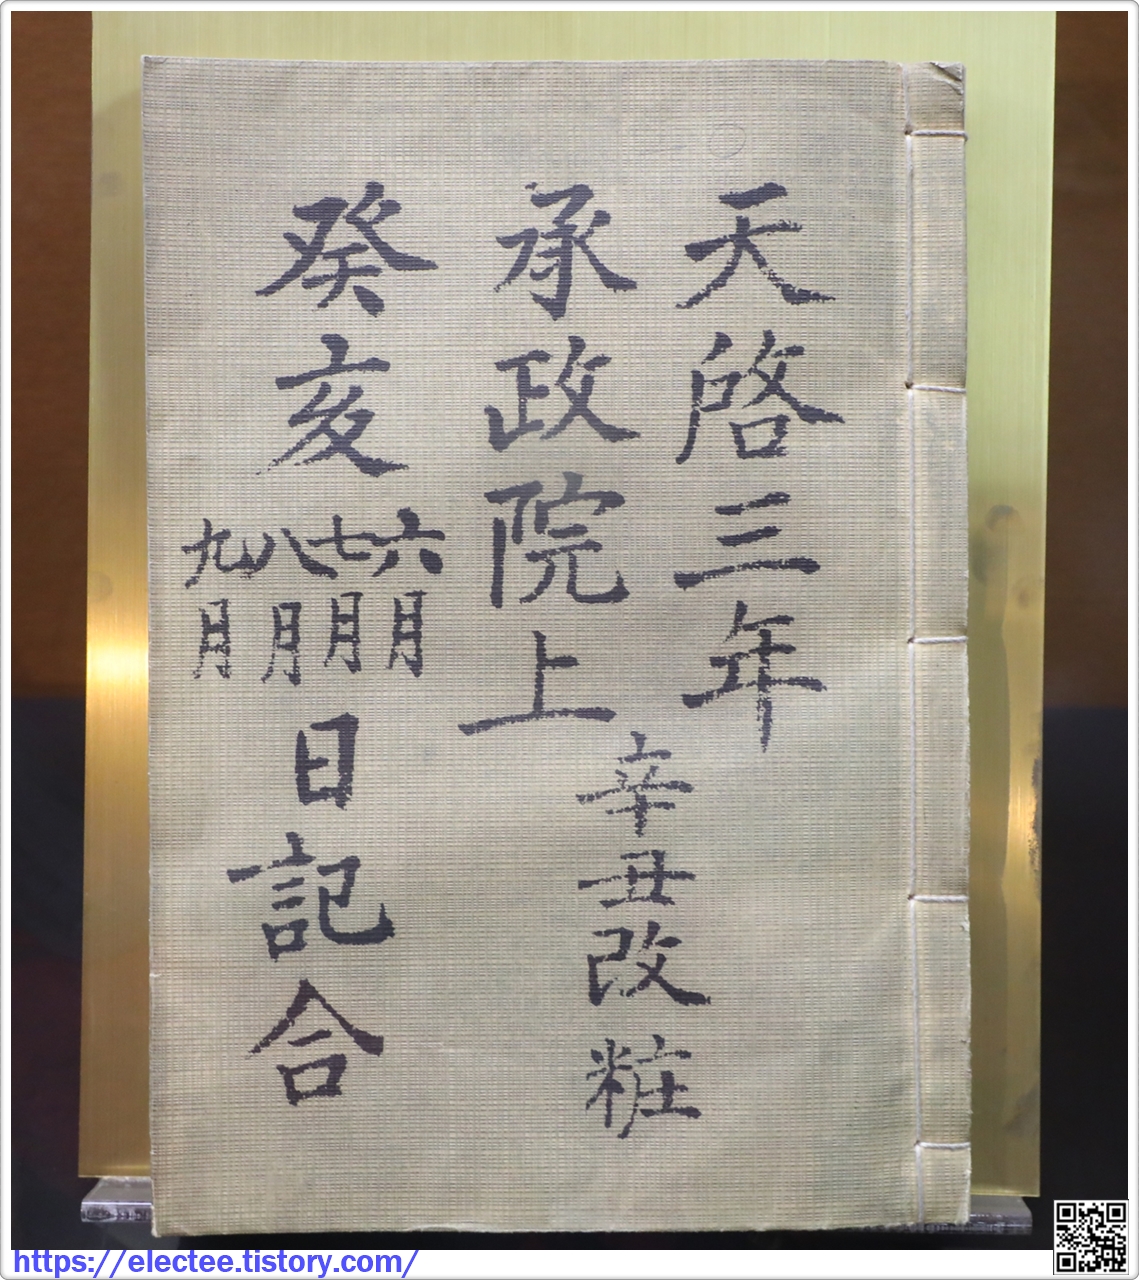 天啓三年
承政院上
辛丑改粧
癸亥
六月
七月
八月
九月
日記合
https://electee.tistory.com/